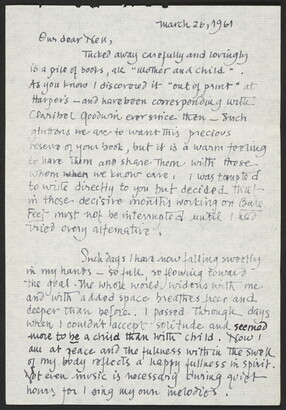 March 26, 1961
Our dear Nell,
Tucked away carefully and lovingly
is a pile of books, all "Mother and Child".
As you know I discovered it "out of print" at
Harper's — and have been corresponding with
Claribel Goodwin ever since then — such
gluttons we are to want this precious
reserve of your book, but it is a warm feeling
to have them and share them with those
whom when we know care. I was tempted
to write directly to you but decided that
in these decisive months working on Bare
Feet must not be interrupted until I had
tried every alternative.
Such days I have now falling sweetly
in my hands — so full, so flowing toward
the goal. The whole world widens with me
and with added space breathes free and
deeper than before. I passed through days
when I couldn't accept solitude and seemed
more to be a child than with child. Now I
am at peace and the fullness within the swell
of my body reflects a happy fullness in spirit.
Not even music is necessary during quiet
hours for I sing my own melodies.